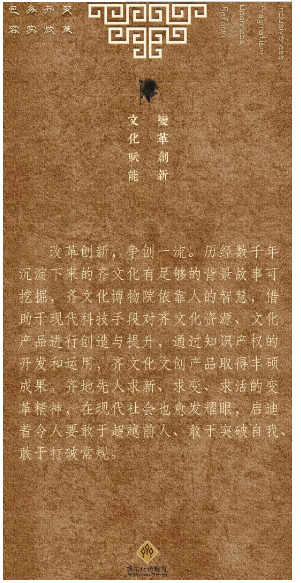 变革
开放
务实
包容
Inclusiveness
Pragmatism
Openness
Reform
變革創新
文化赋能
改革创新，争创一流。历经数千年
沉淀下来的齐文化有足够的背景故事可
挖掘，齐文化博物院依靠人的智慧，借
助于现代科技手段对齐文化资源、文化
产品进行创造与提升，通过知识产权的
开发和运用，齐文化文创产品取得丰硕
成果。齐地先人求新、求变、求活的变
革精神，在现代社会也愈发耀眼，启迪
着今人要敢于超越前人、敢于突破自我、
敢于打破常规。
齐文化博物院